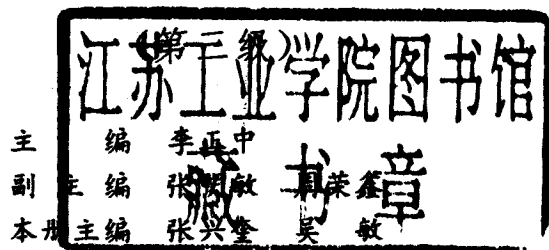 (第二级)
江苏工业学院图书馆
藏书章
主编 李正中
副主编 张 敏 周荣鑫
本册主编 张兴奎 吴敏